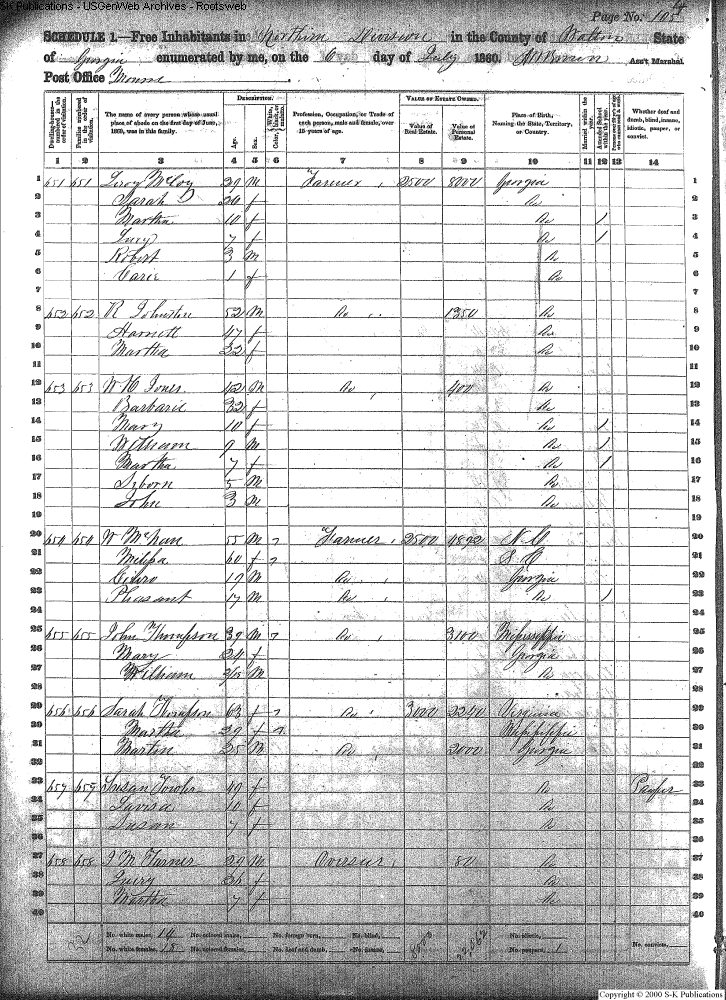 SK Publications - USGenWeb Archives - Rootsweb
Page No. 105
SCHEDULE 1.—Free Inhabitants in Northern Division in the County of Walton State
of Georgia enumerated by me, on the 6 day of July 1860. Ass't Marshal.
Post Office Monroe
Dwelling-houses—numbered in the order of visitation.
Families numbered in the order of visitation.
The name of every person whose usual place of abode on the first day of June, 1860, was in this family.
DESCRIPTION.
Age.
Sex.
Color, White, black, or mulatto.
Profession, Occupation, or Trade of each person, male and female, over 15 years of age.
VALUE OF ESTATE OWNED.
Value of Real Estate.
Value of Personal Estate.
Place of Birth, Naming the State, Territory, or Country.
Married within the year.
Attended School within the year.
Whether deaf and dumb, blind, insane, idiotic, pauper, or convict.
1 2 3 4 5 6 7 8 9 10 11 12 13 14
1 651 651 Leroy McCoy 39 M Farmer 2500 8000 Georgia 1
2 Sarah D f Do 2
3 Martha 10 f Do / 3
4 Lucy 7 f Do / 4
5 Robert 3 M Do 5
6 Carie 1 f Do 6
7 7
8 652 652 R Johnston 52 M Do 1350 Do 8
9 Harriett 47 f Do 9
10 Martha 22 f Do 10
11 11
12 653 653 W H Jones 42 M Do 400 Do 12
13 Barbarie 32 f Do 13
14 Mary 10 f Do / 14
15 William 9 M Do / 15
16 Martha 7 f Do / 16
17 Osborn 5 M Do 17
18 John 3 M Do 18
19 19
20 654 654 W McHan 55 M 7 Farmer 2500 4892 N. C 20
21 Milssa 60 f 7 S C 21
22 Cicero 19 M Do Georgia 22
23 Pleasant 17 M Do Do / 23
24 24
25 655 655 John Thompson 39 M 7 Do 3100 Mississippi 25
26 Mary 24 f Georgia 26
27 William M Do 27
28 28
29 656 656 Sarah Thompson 63 f 7 Do 3000 2240 Virginia 29
30 Martha 39 f 7 Mississippi 30
31 Martin 25 M Do 2000 Georgia 31
32 32
33 657 657 Susan Fowler 40 f Do Pauper 33
34 Lavisa 10 f Do 34
35 Susan 7 f Do 35
36 36
37 658 658 J M Farner 29 M Overseer 80 Do 37
38 36 f Do 38
39 Martha 7 f Do 39
40 40
No. white males, 14 No. colored males, No. foreign born, No. blind, No. idiotic,
No. white females, 18 No. colored females, No. deaf and dumb, No. insane, No. paupers, 1 No. convicts,
Copyright © 2000 S-K Publications